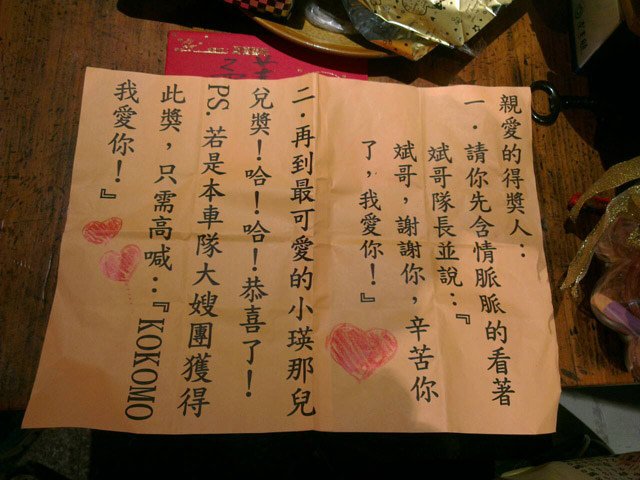 親愛的得獎人：
一．請你先含情脈脈的看著
斌哥隊長並說：『
斌哥，謝謝你，辛苦你
了，我愛你！』
二．再到最可愛的小瑛那兒
兌獎！哈！哈！恭喜了！
PS. 若是本車隊大嫂團獲得
此獎，只需高喊：『KOKOMO
我愛你！』